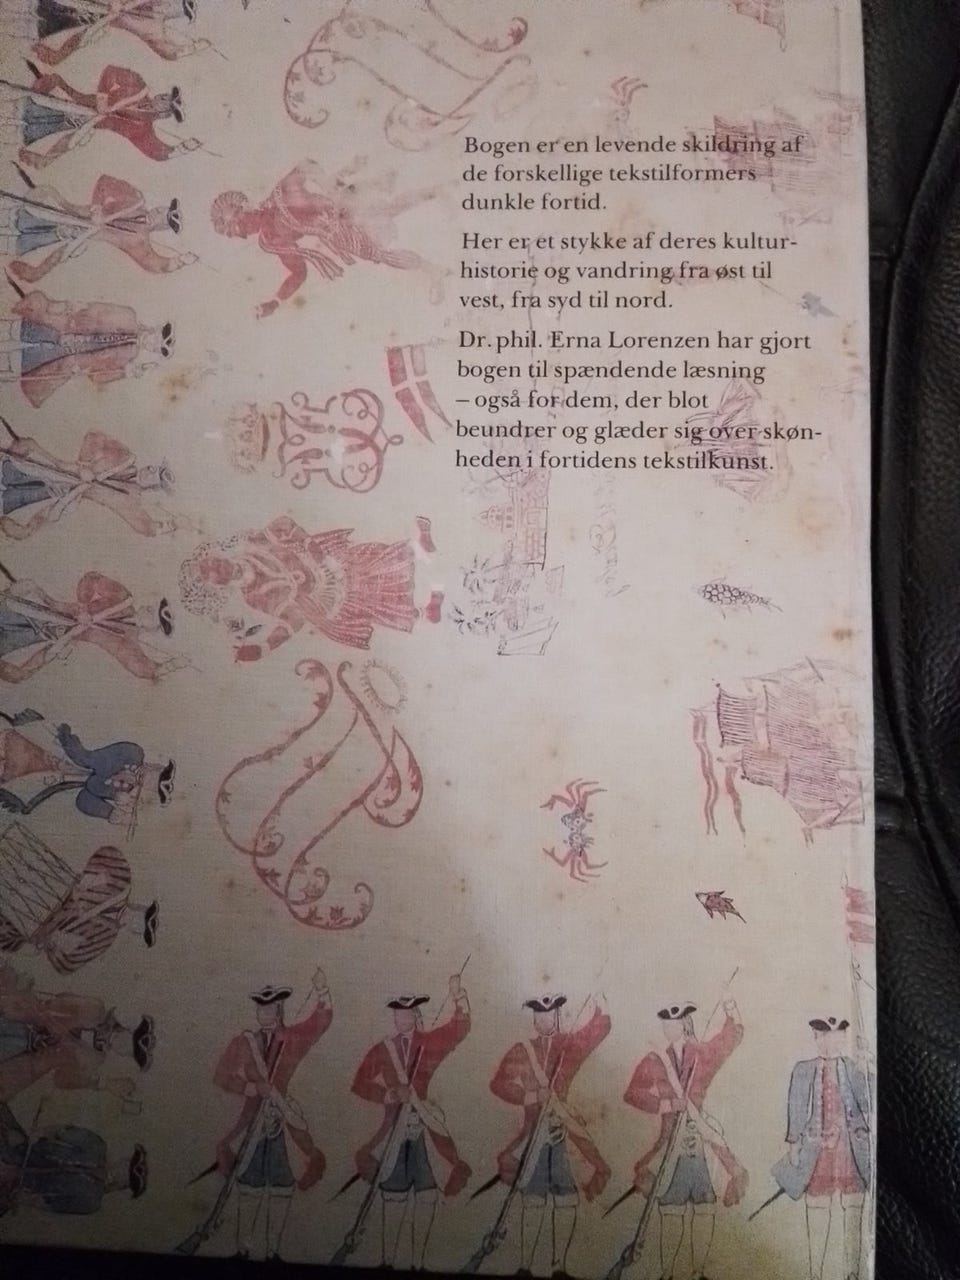 Bogen er en levende skildring af
de forskellige tekstilformers
dunkle fortid.
Her er et stykke af deres kultur-
historie og vandring fra øst til
vest, fra syd til nord.
Dr. phil. Erna Lorenzen har gjort
bogen til spændende læsning
– også for dem, der blot
beundrer og glæder sig over skøn-
heden i fortidens tekstilkunst.